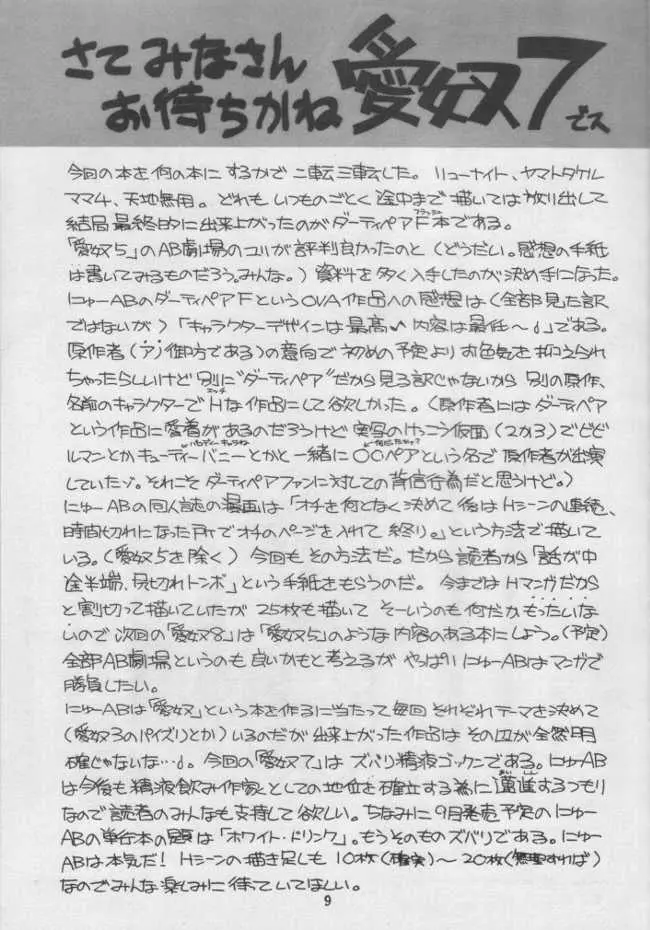 さて みなさん
お待ちかね 愛奴7でス
今回の本を何の本に するかで 二転三転した。 リューナイト、ヤマトタケル
ママ4、天地無用。 どれも いつものごとく 途中まで 描いては放り出して
結局 最終的に出来上がったのが ダーティペアF本である。
フラッシュ
「愛奴5」のAB劇場のユリが評判良かったのと (どうだい。感想の手紙
は書いてみるものだろう。みんな。) 資料を多く入手したのが決め手になった。
にゅーABのダーティペアFというOVA作品への感想は(全部見た訳
ではないが) 「キャラクターデザインは最高♪ 内容は最低〜」である。
原作者(ア)御方である)の意向で初めの予定よりお色気を抑えられ
ちゃったらしいけど 別に"ダーティペア"だから見る訳じゃないから 別の原作、
名前のキャラクターで Hな作品にして欲しかった。(原作者には ダーティペア
エッチ
という作品に愛着があるのだろうけど 実写のけっこう仮面(2か3)でビビ
ルマンとかキューティーバニーとかと一緒に 〇〇ペアという名で 原作者が出演
していたゾ。それこそ ダーティペアファンに対しての背信行為だと思うけど。)
にゅーABの同人誌の漫画は「オチを何となく決めて 後はHシーンの連続、
時間切れになった所でオチのページを入れて 終り。」という方法で描いて
いる。(愛奴5を除く) 今回も その方法だ。だから 読者から「話が中
途半端、尻切れトンボ」という手紙をもらうのだ。 今までは Hマンガだから
と割切って描いていたが 25枚も描いて そーいうのも何だかもったいな
いので 次回の「愛奴8」は「愛奴5」のような内容のある本にしよう。(予定)
全部AB劇場というのも良いかもと考えるが やっぱり にゅーABはマンガで
勝負したい。
にゅーABは「愛奴」という本を作るに当たって 毎回 それぞれテーマを決めて
(愛奴3のパイズリとか)いるのだが 出来上がった作品は その辺が全然明
確じゃないな…。 今回の「愛奴7」は ズバリ精液ゴックンである。にゅーAB
は今後も精液飲み作家としての地位を確立する為に 邁進するつもり
なので 読者のみんなも支持して欲しい。ちなみに 9月発売予定のにゅー
ABの単行本の題は「ホワイト・ドリンク」。もうそのものズバリである。にゅー
ABは本気だ! Hシーンの描き足しも 10枚(確実)〜20枚(無理すれば)
なのでみんな楽しみに待っていてほしい。
9